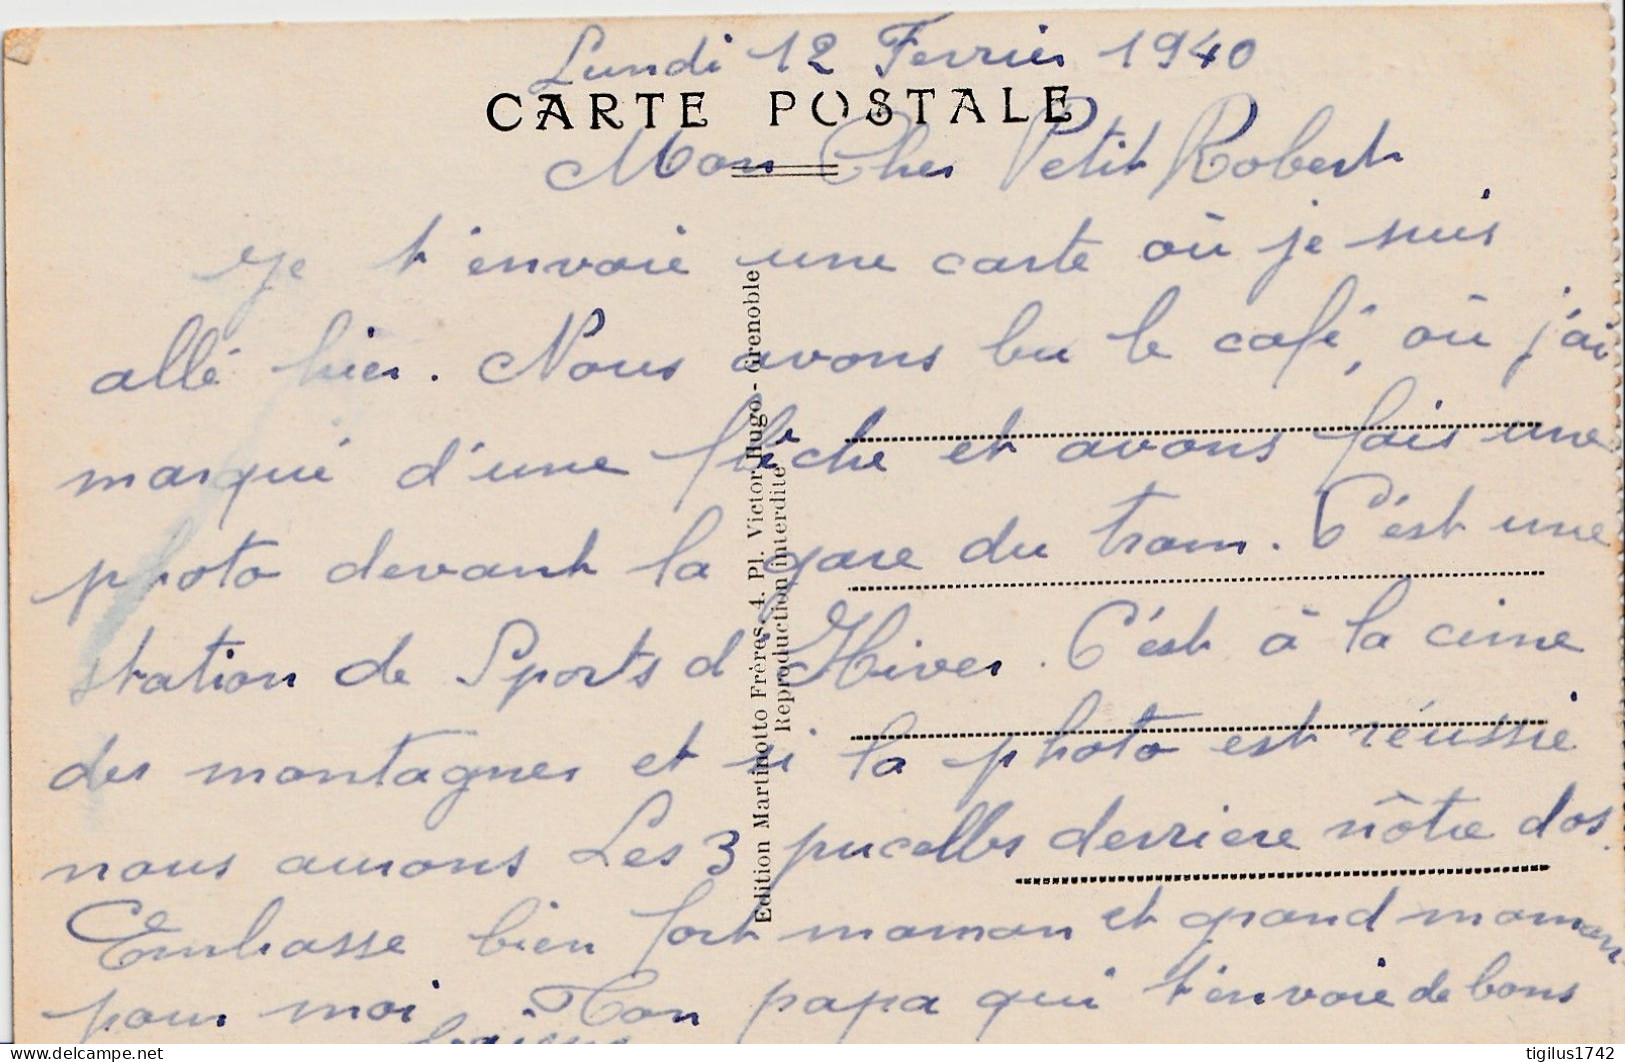 Lundi 12 Fevrier 1940
CARTE POSTALE
Mon Cher Petit Robert
Je t'envoie une carte où je suis
allé hier. Nous avons bu le café, où j'ai
marqué d'une flèche et avons fais une
photo devant la gare du tram. C'est une
station de Sports d'Hiver. C'est à la cime
des montagnes et si la photo est réussie
nous aurons Les 3 pucelles derriere nôtre dos.
Embrasse bien fort maman et grand maman
pour moi. Ton papa qui t'envoie de bons
Edition Martinotto Frères, 4, Pl. Victor Hugo - Grenoble
Reproduction interdite
delcampe.net
tigilus1742